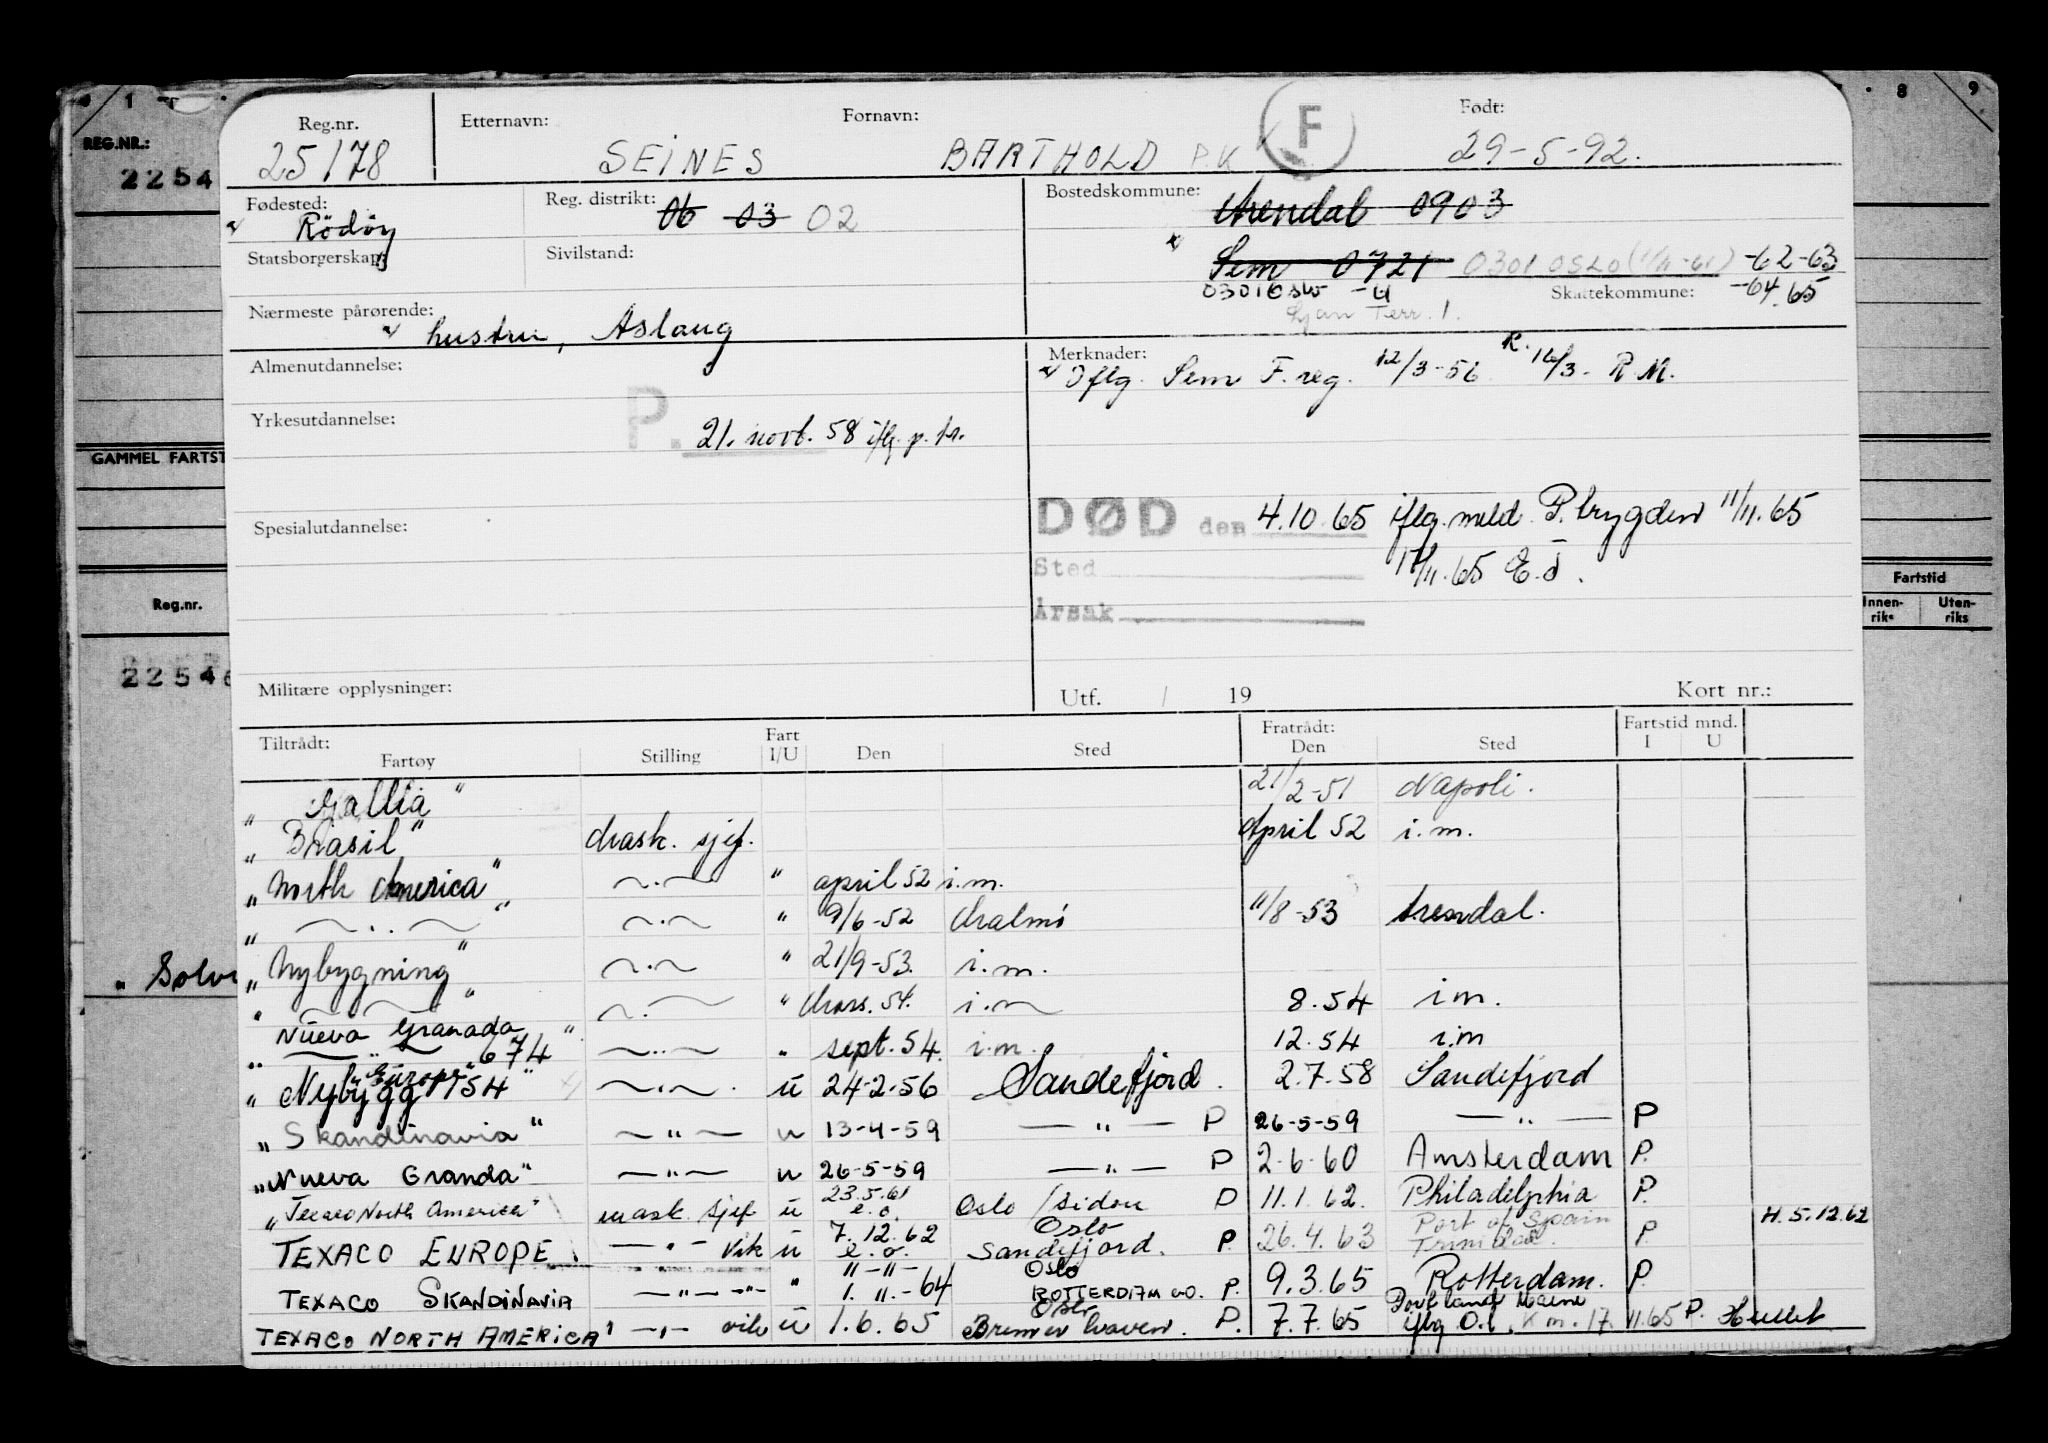 REG.NR.:
2254
GAMMEL FARTST
Reg.nr.
2254
„ Solv
1
8 9
Fartstid
Innen-riks Uten-riks
Reg.nr. Etternavn: Fornavn: F Født:
25178 SEINES BARTHOLD P.K 29-5-92.
Fødested: Rödöy Reg. distrikt: 06 03 02 Bostedskommune: Arendal 0903
Statsborgerskap: Sivilstand: Sem 0721 0301 OSLO (1/11-61) -62-63
0301 Oslo -U Skattekommune: -64.65
Ljan Terr. 1.
Nærmeste pårørende: hustru, Aslaug
Almenutdannelse: Merknader: Iflg. Sem F. reg. 12/3-56 R. 16/3- R.M.
Yrkesutdannelse: P. 21. novb. 58 iflg. p. tr.
Spesialutdannelse: DØD den 4.10.65 iflg. meld. P. trygden 11/11.65
Sted 17/11.65 E.J.
Årsak
Militære opplysninger: Utf. / 19 Kort nr.:
Tiltrådt: Fratrådt: Fartstid mnd.
Fartøy Stilling Fart I/U Den Sted Den Sted I U
„ Gallia" 21/2-51 Napoli.
„ Brasil" Mask. sjef. April 52 i.m.
„ North America" ~.~ " april 52 i.m.
„ ~..~ " ~.~ " 9/6-52 Malmö 11/8-53 Arendal.
„ Nybygning" ~.~ " 21/9-53. i.m.
" ~ ~ " ~.~ " Mars. 54. i.m 8.54 i.m.
Nueva Granada
„ — " — 674 " ~..~ " sept. 54. i.m. 12.54 i.m
„ Europe"
„ Nybygg 154" ~.~. u 24-2-56 Sandefjord. 2.7.58 Sandefjord
„ Skandinavia" —"— u 13-4-59 —"— P 26-5-59 —"— P
„ Nueva Granda" —"— u 26-5-59 —"— P 2-6-60 Amsterdam P.
„ Texaco North America" mask. sjef u 23.5.61 e.o. Oslo / Sidon P 11.1.62. Philadelphia P.
TEXACO EUROPE. —"— Vik u 7.12.62 e.o. Oslo Sandefjord. P. 26.4.63 Port of Spain Trinidad. P H. 5.12.62
TEXACO SKANDINAVIA —"— —"— " "—"— 1.11.-64 Oslo ROTTERDAM e.o. P. 9.3.65 Rotterdam. P.
TEXACO NORTH AMERICA" —"— vik u 1.6.65 Oslo Bremerhaven. P. 7.7.65 Portland Maine iflg O.l. Km. 17.11.65 P. Hullet